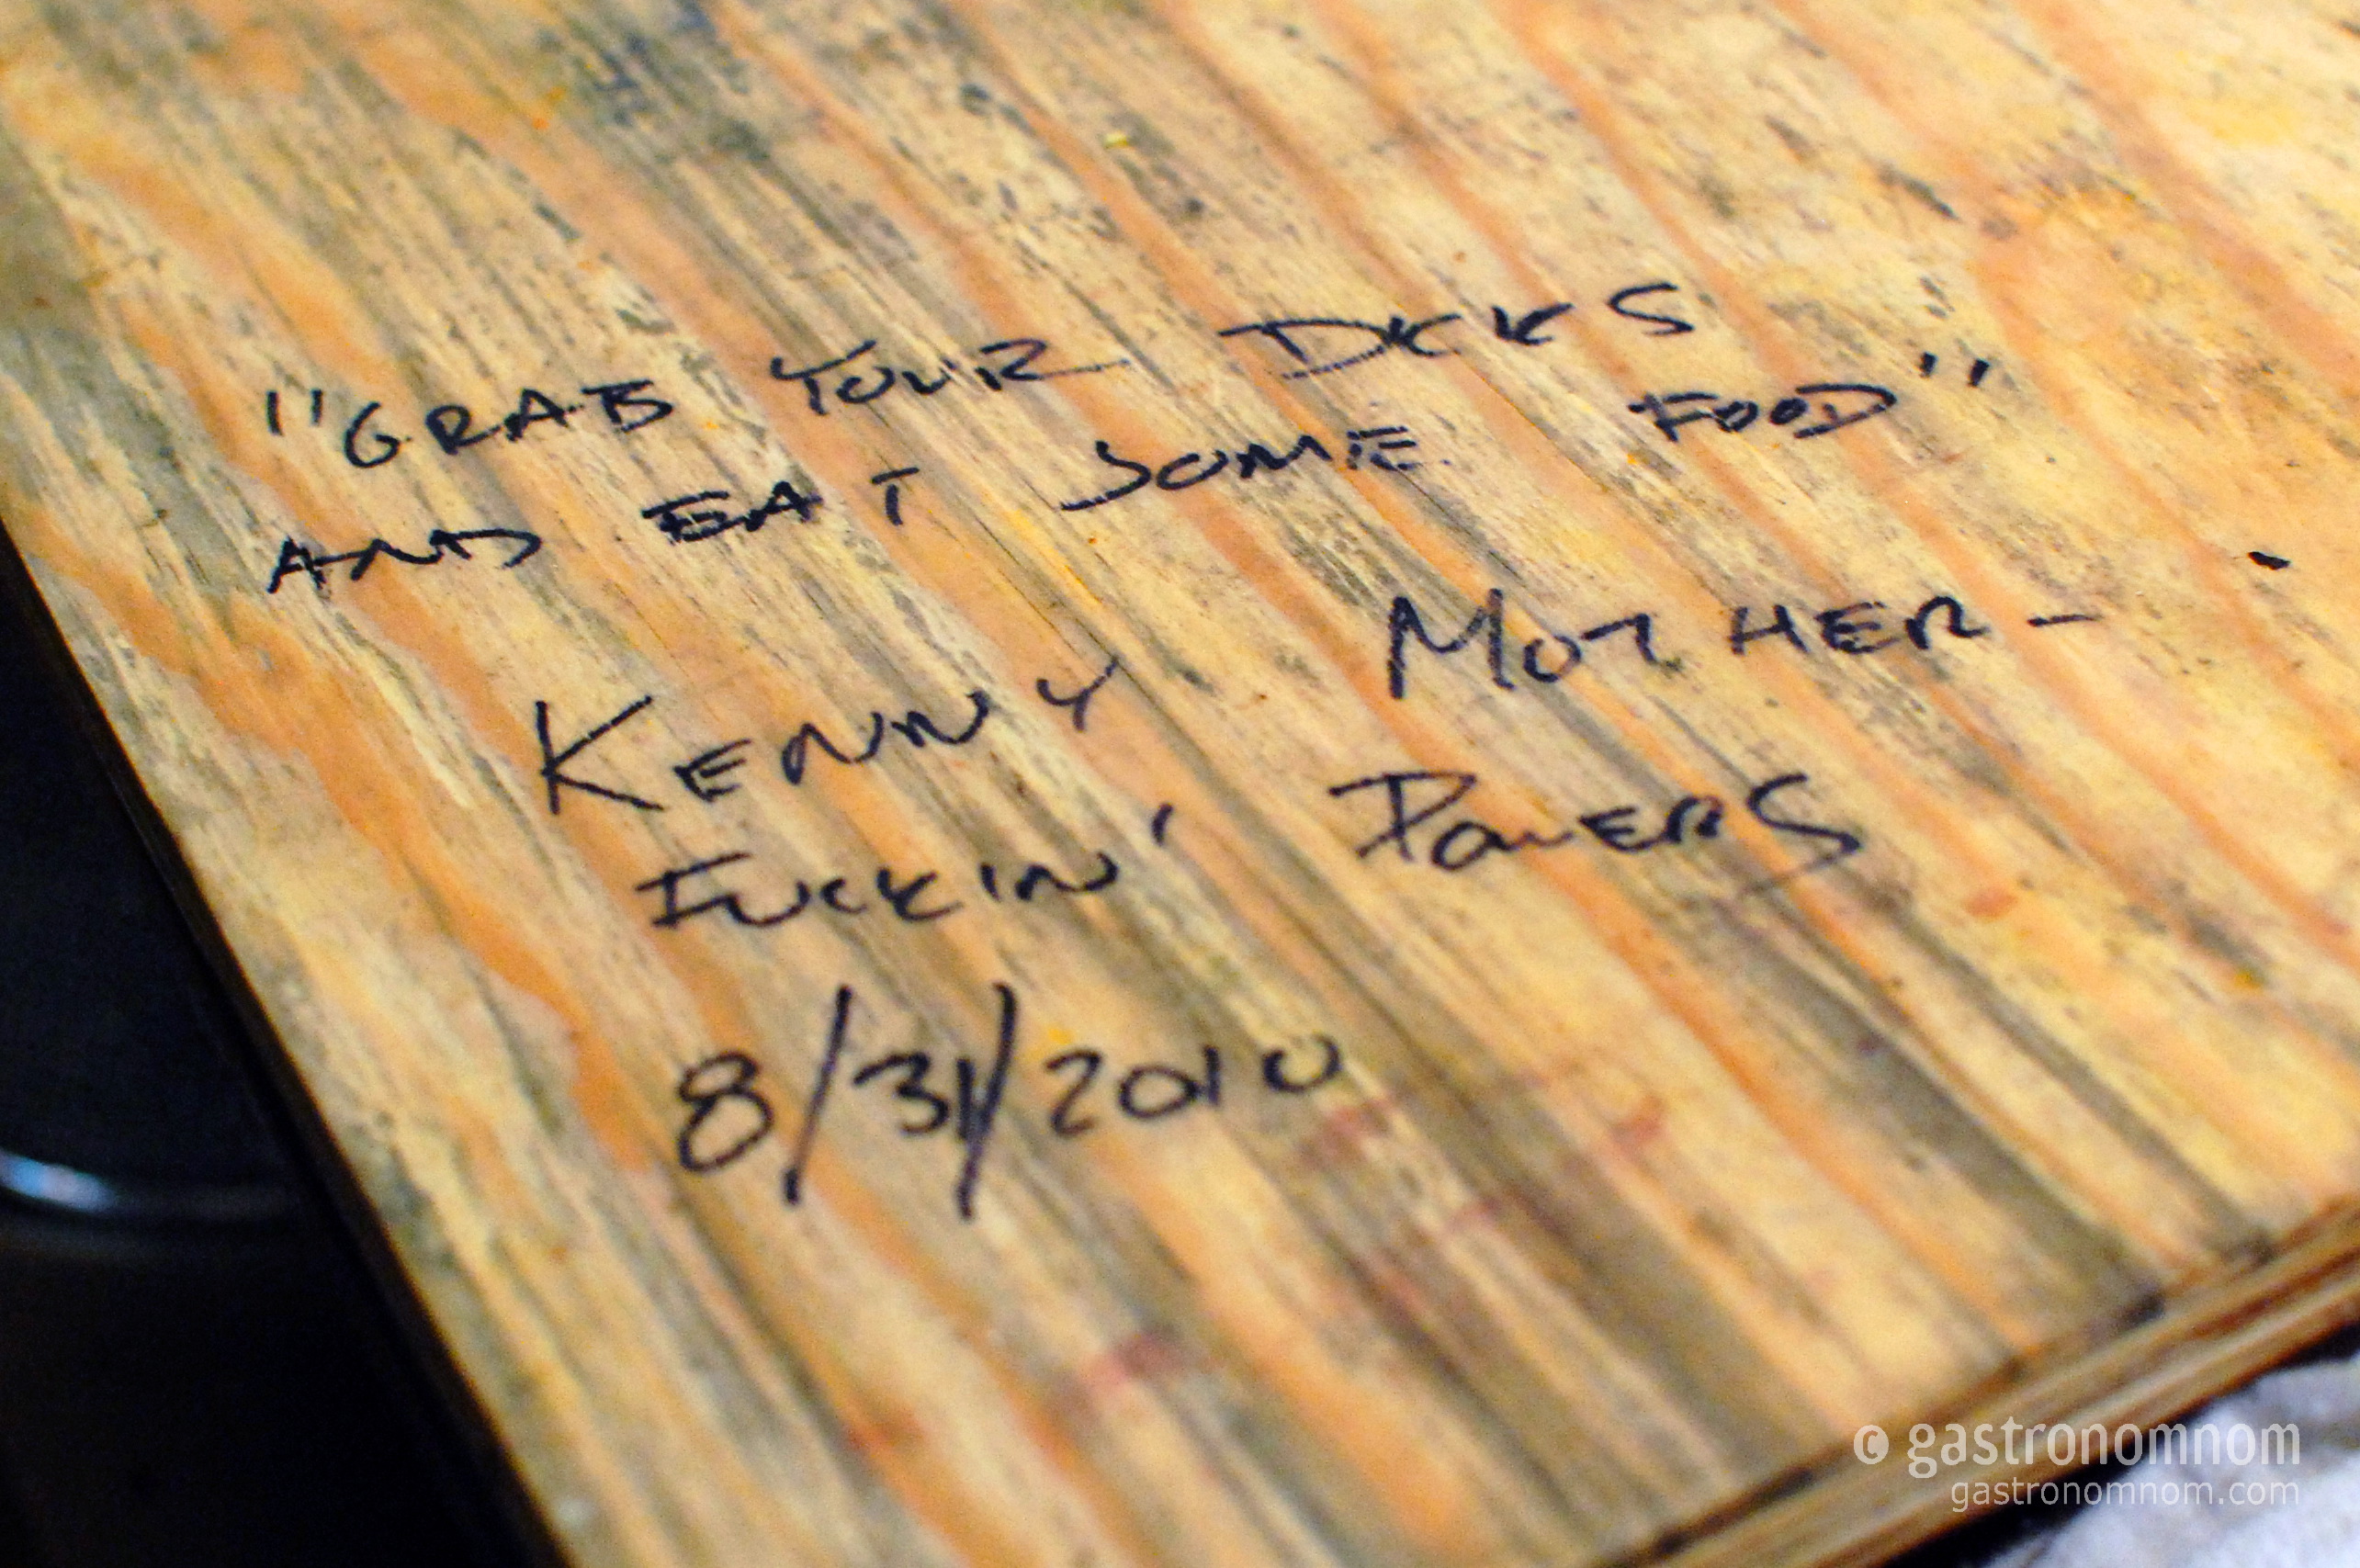 "GRAB YOUR DICKS
AND EAT SOME FOOD"
KENNY MOTHER-
FUCKIN' POWERS
8/31/2010
© gastronomnom
gastronomnom.com